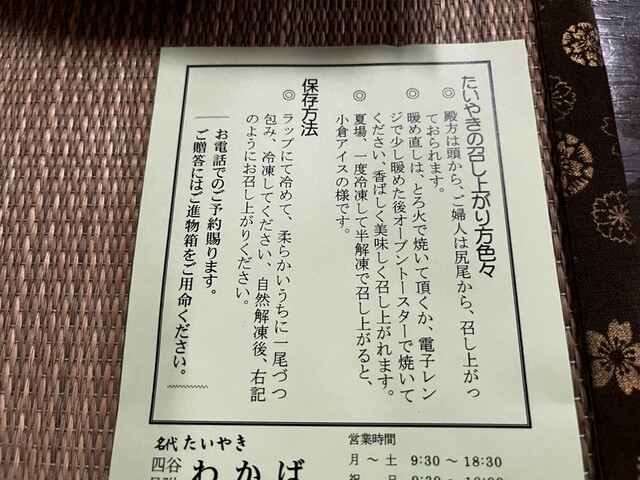 たいやきの召し上がり方色々
◎ 殿方は頭から、ご婦人は尻尾から、召し上がっ
ておられます。
◎ 暖め直しは、とろ火で焼いて頂くか、電子レン
ジで少し暖めた後オーブントースターで焼いて
ください、香ばしく美味しく召し上がれます。
◎ 夏場、一度冷凍して半解凍で召し上がると、
小倉アイスの様です。
保存方法
◎ ラップにて冷めて、柔らかいうちに一尾づつ
包み、冷凍してください、自然解凍後、右記
のようにお召し上がりください。
お電話でのご予約賜ります。
ご贈答にはご進物箱をご用命ください。
名代 たいやき
四谷
わかば
営業時間
月〜土 9:30〜18:30
祝